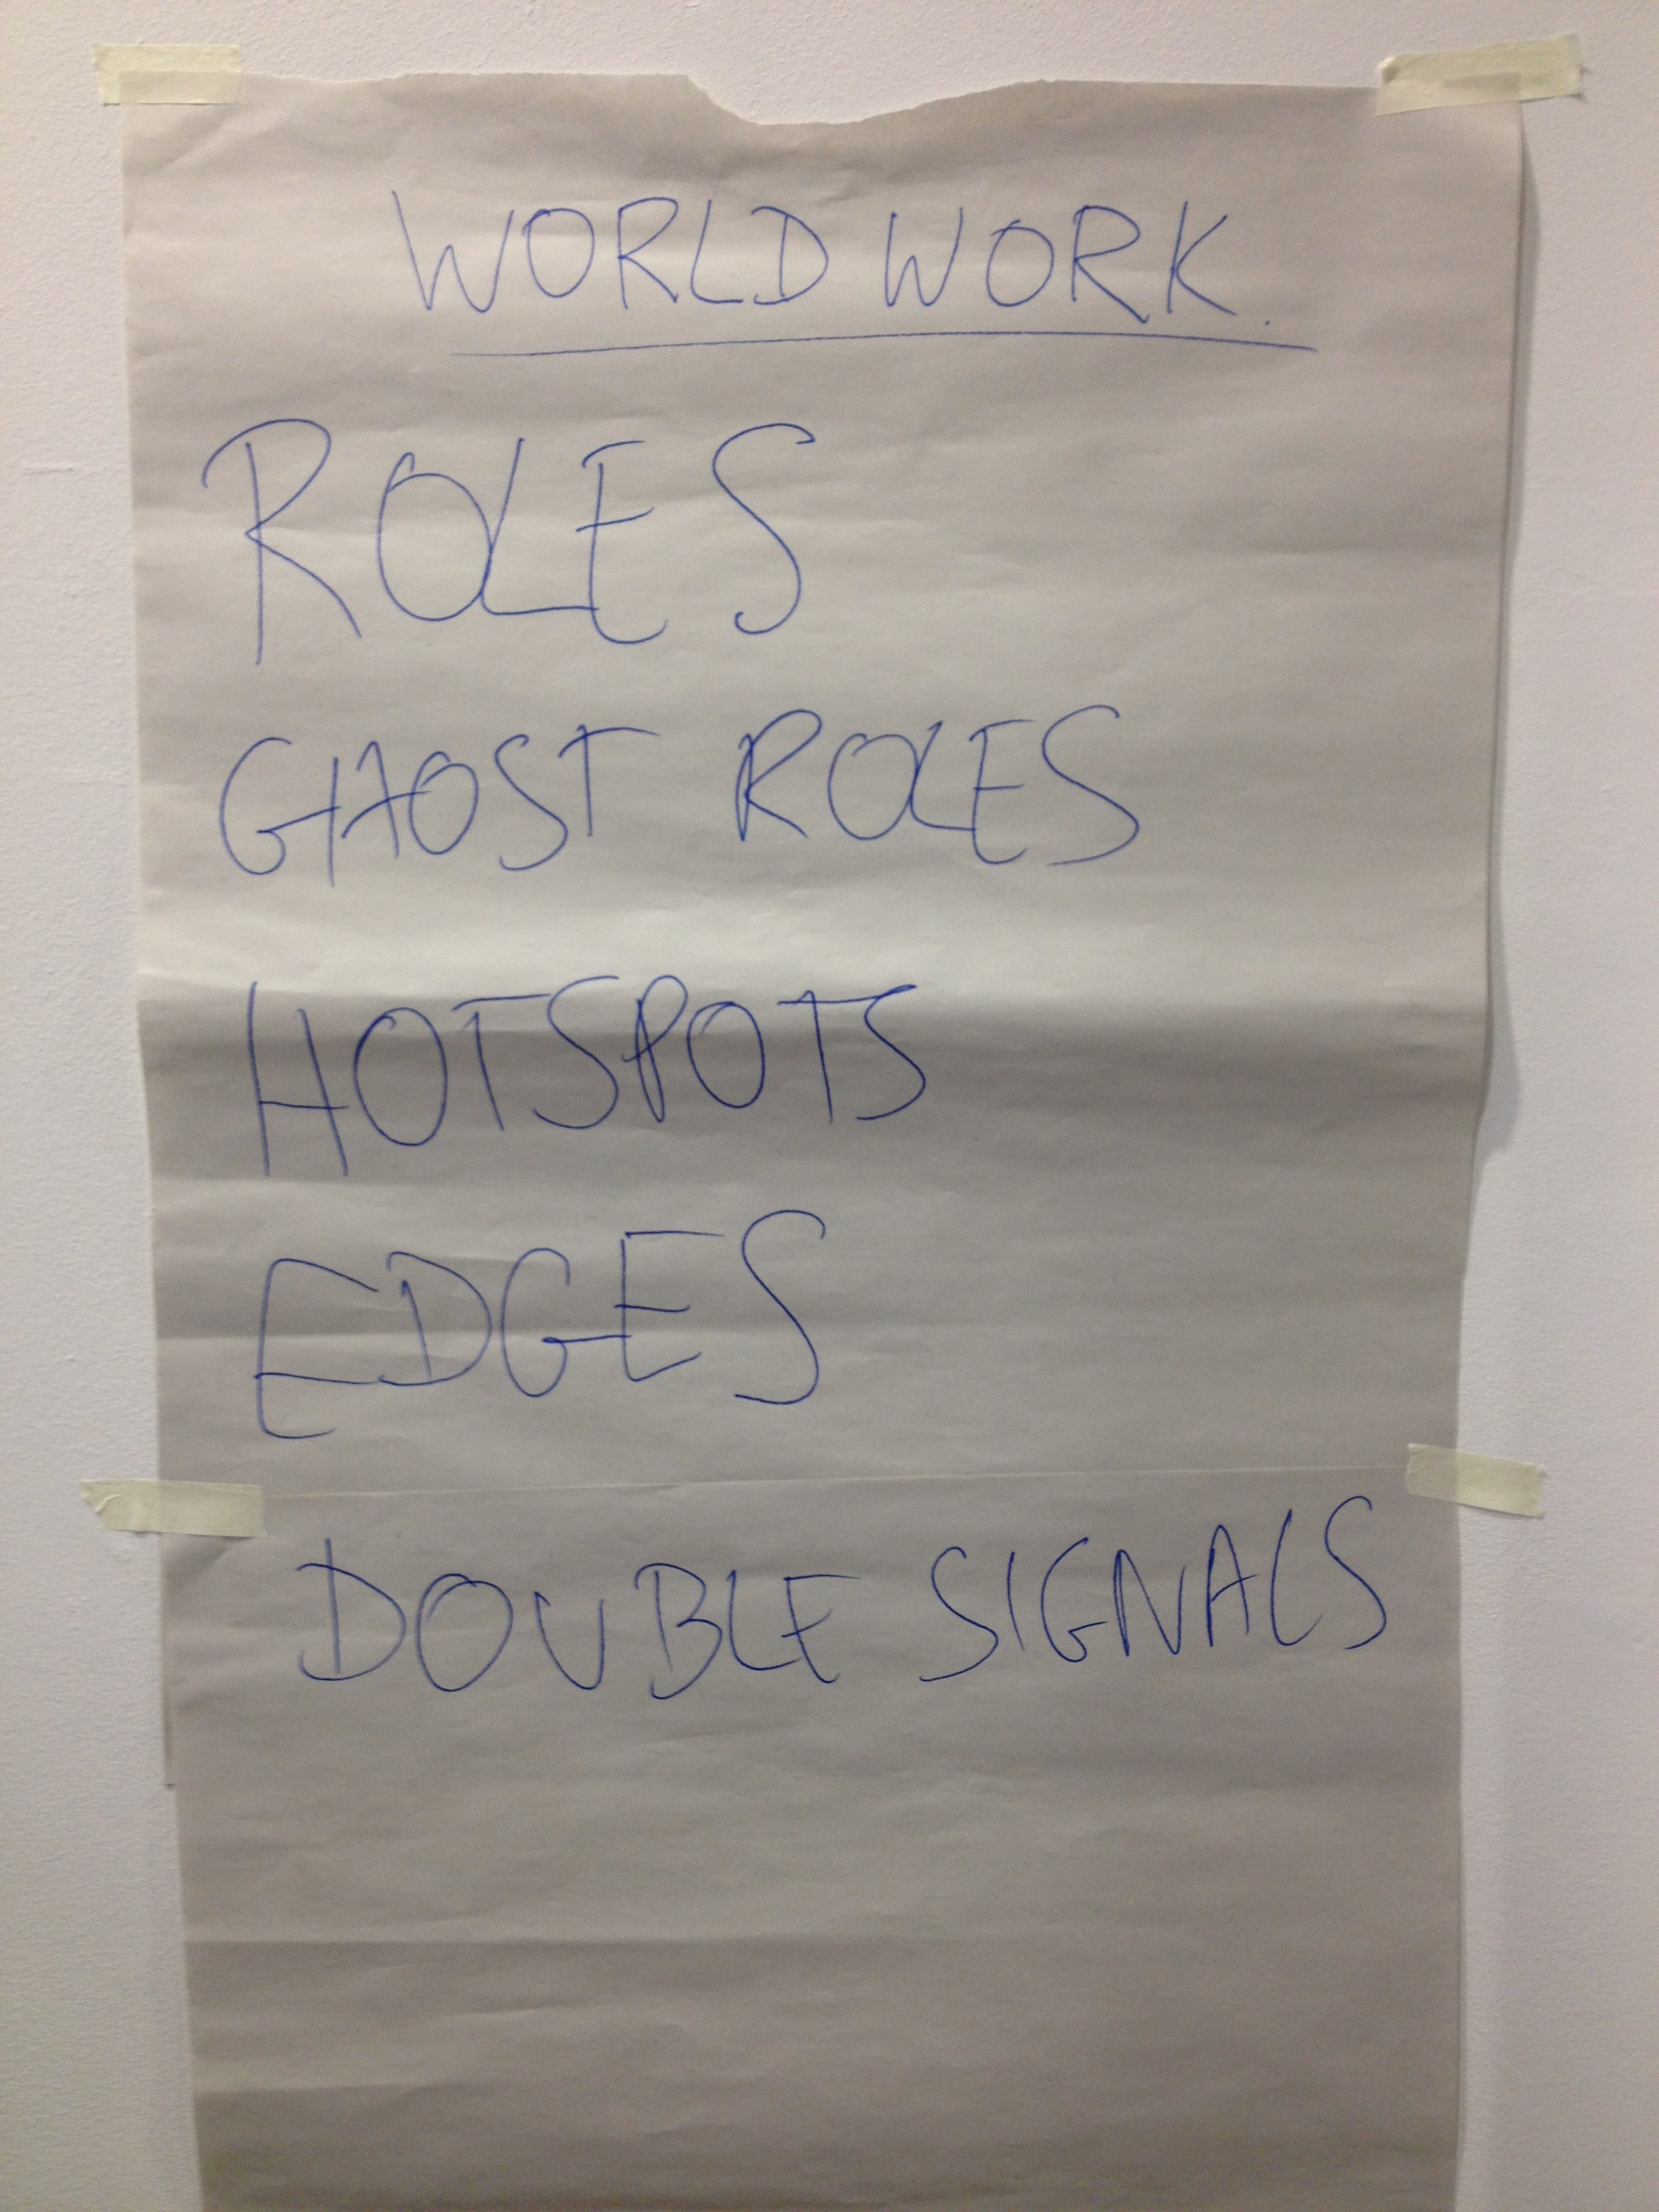 WORLD WORK.
ROLES
GHOST ROLES
HOTSPOTS
EDGES
DOUBLE SIGNALS